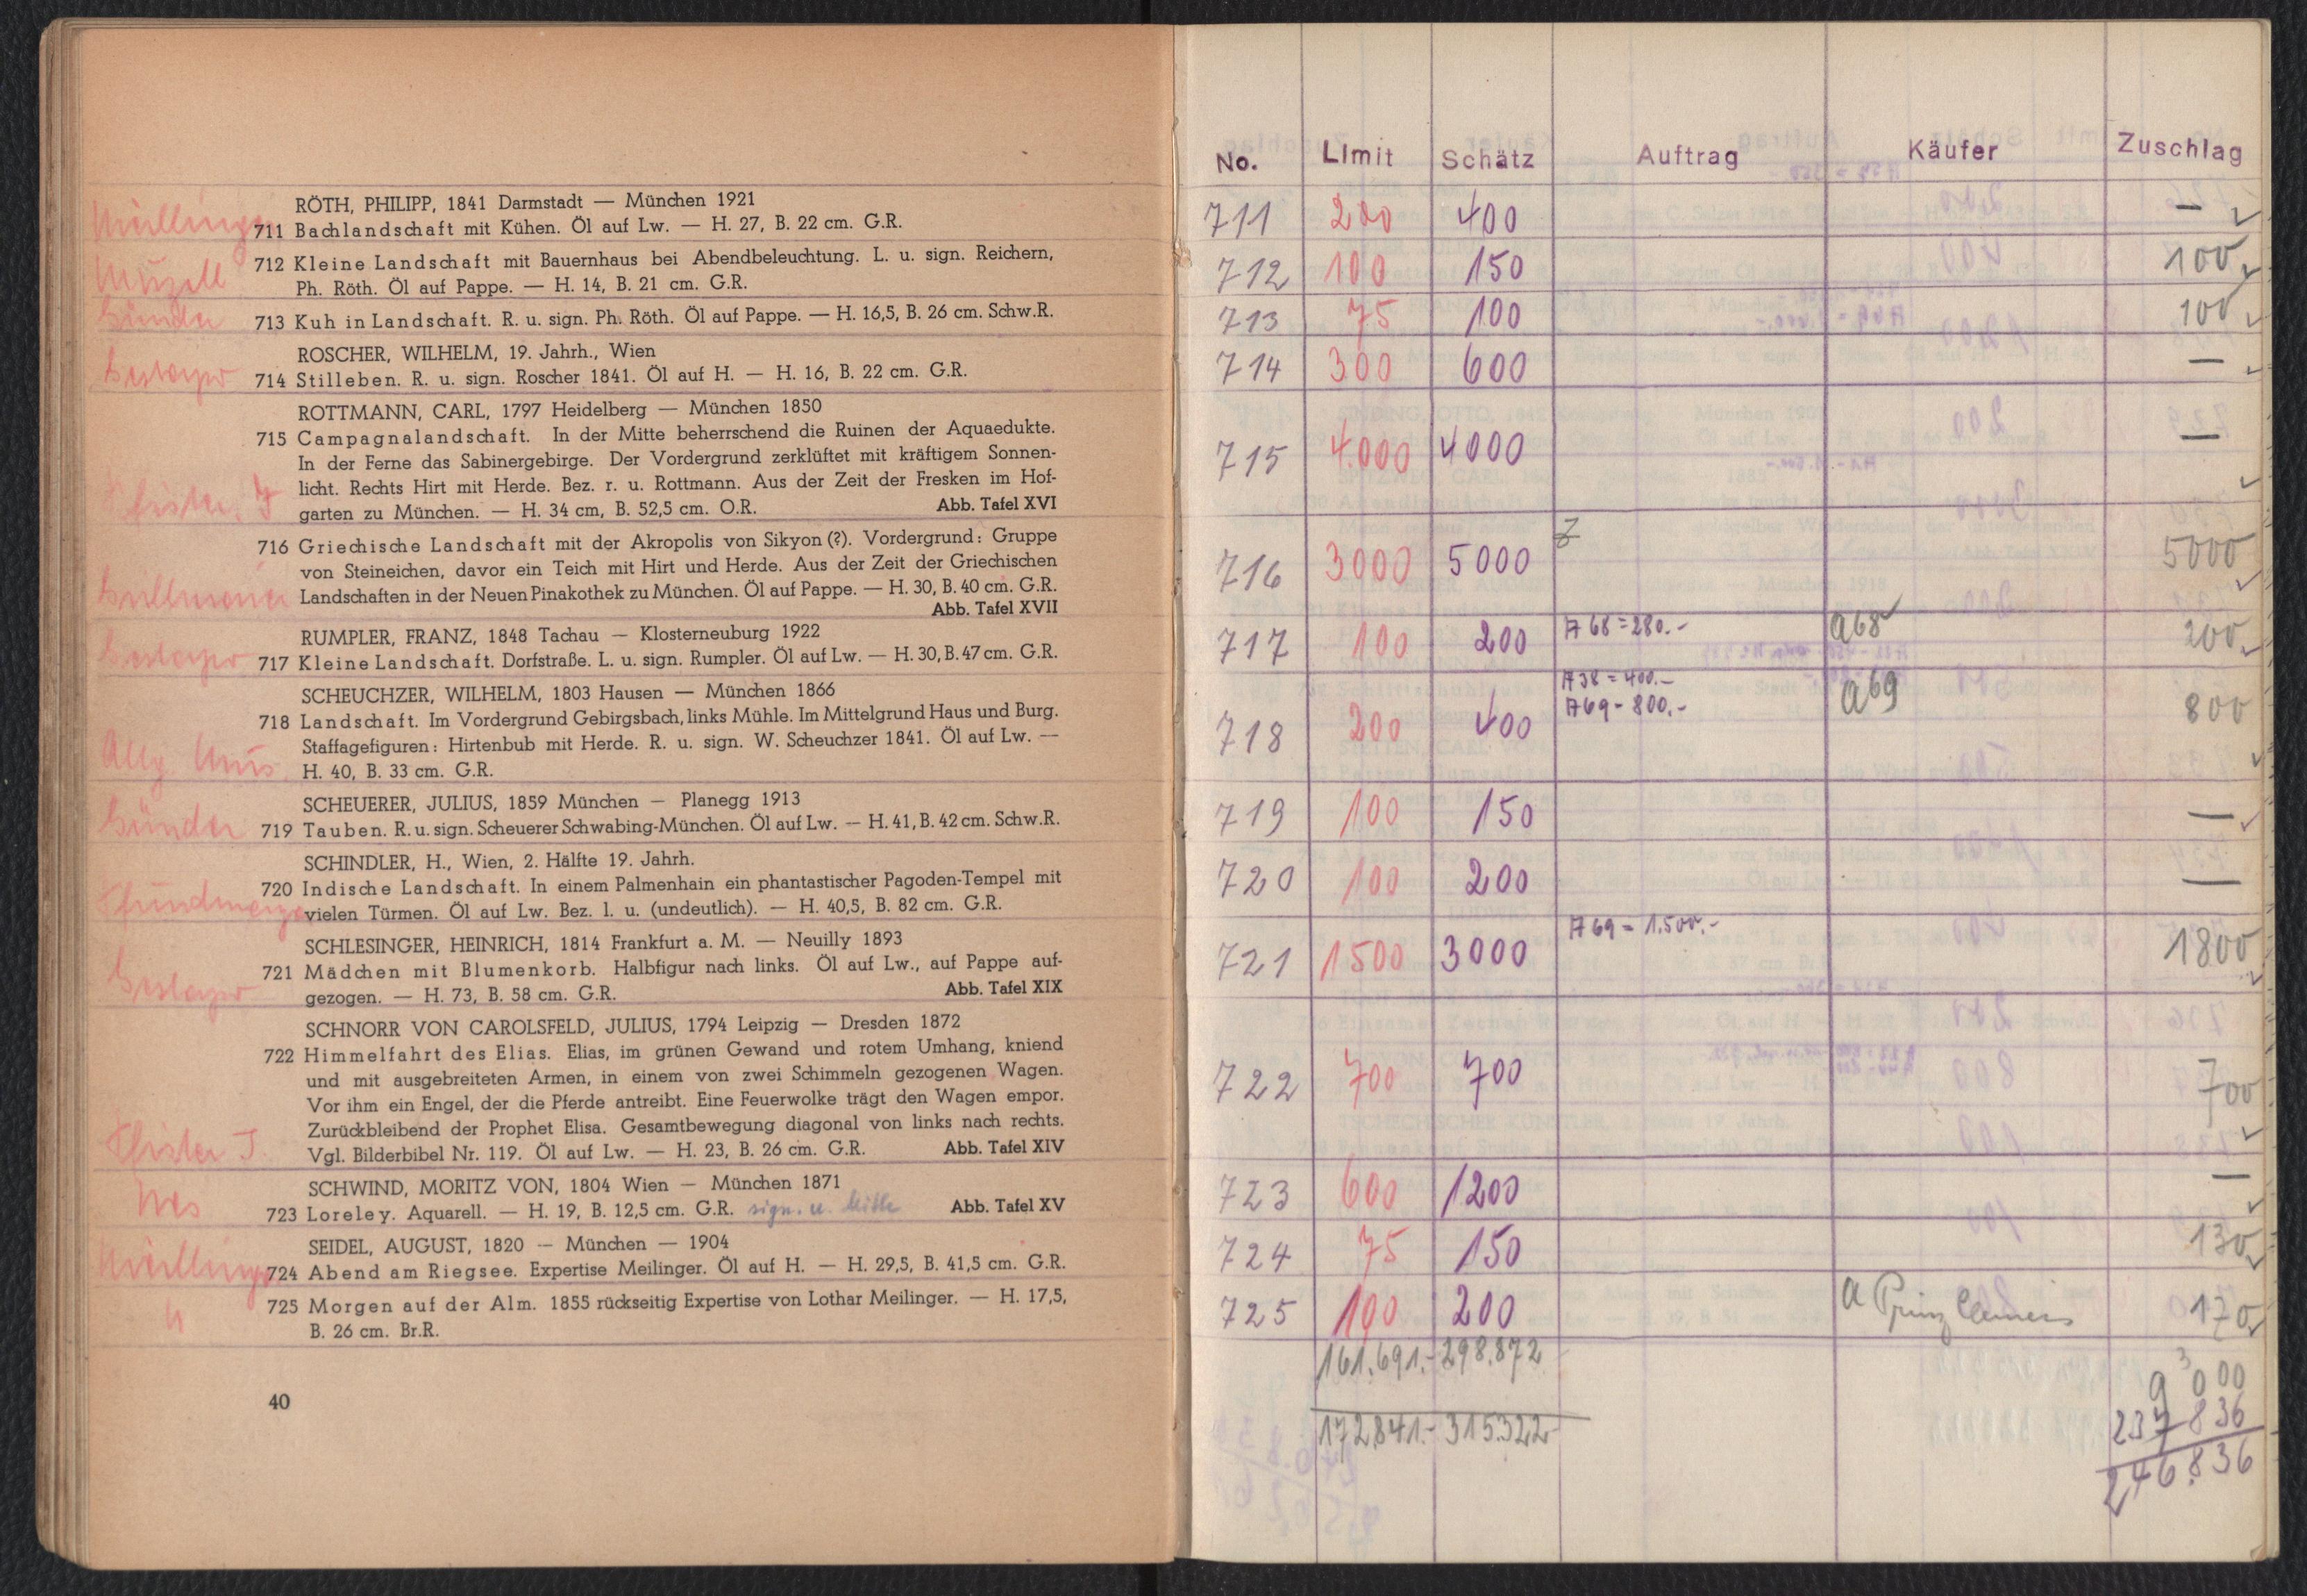 RÖTH, PHILIPP, 1841 Darmstadt — München 1921
711 Bachlandschaft mit Kühen. Öl auf Lw. — H. 27, B. 22 cm. G.R.
712 Kleine Landschaft mit Bauernhaus bei Abendbeleuchtung. L. u. sign. Reichern,
Ph. Röth. Öl auf Pappe. — H. 14, B. 21 cm. G.R.
713 Kuh in Landschaft. R. u. sign. Ph. Röth. Öl auf Pappe. — H. 16,5, B. 26 cm. Schw.R.
ROSCHER, WILHELM, 19. Jahrh., Wien
714 Stilleben. R. u. sign. Roscher 1841. Öl auf H. — H. 16, B. 22 cm. G.R.
ROTTMANN, CARL, 1797 Heidelberg — München 1850
715 Campagnalandschaft. In der Mitte beherrschend die Ruinen der Aquaedukte.
In der Ferne das Sabinergebirge. Der Vordergrund zerklüftet mit kräftigem Sonnen-
licht. Rechts Hirt mit Herde. Bez. r. u. Rottmann. Aus der Zeit der Fresken im Hof-
garten zu München. — H. 34 cm, B. 52,5 cm. O.R. Abb. Tafel XVI
716 Griechische Landschaft mit der Akropolis von Sikyon (?). Vordergrund: Gruppe
von Steineichen, davor ein Teich mit Hirt und Herde. Aus der Zeit der Griechischen
Landschaften in der Neuen Pinakothek zu München. Öl auf Pappe. — H. 30, B. 40 cm. G.R.
Abb. Tafel XVII
RUMPLER, FRANZ, 1848 Tachau — Klosterneuburg 1922
717 Kleine Landschaft. Dorfstraße. L. u. sign. Rumpler. Öl auf Lw. — H. 30, B. 47 cm. G.R.
SCHEUCHZER, WILHELM, 1803 Hausen — München 1866
718 Landschaft. Im Vordergrund Gebirgsbach, links Mühle. Im Mittelgrund Haus und Burg.
Staffagefiguren: Hirtenbub mit Herde. R. u. sign. W. Scheuchzer 1841. Öl auf Lw. —
H. 40, B. 33 cm. G.R.
SCHEUERER, JULIUS, 1859 München — Planegg 1913
Günder 719 Tauben. R. u. sign. Scheuerer Schwabing-München. Öl auf Lw. — H. 41, B. 42 cm. Schw.R.
SCHINDLER, H., Wien, 2. Hälfte 19. Jahrh.
720 Indische Landschaft. In einem Palmenhain ein phantastischer Pagoden-Tempel mit
vielen Türmen. Öl auf Lw. Bez. l. u. (undeutlich). — H. 40,5, B. 82 cm. G.R.
SCHLESINGER, HEINRICH, 1814 Frankfurt a. M. — Neuilly 1893
721 Mädchen mit Blumenkorb. Halbfigur nach links. Öl auf Lw., auf Pappe auf-
gezogen. — H. 73, B. 58 cm. G.R. Abb. Tafel XIX
SCHNORR VON CAROLSFELD, JULIUS, 1794 Leipzig — Dresden 1872
722 Himmelfahrt des Elias. Elias, im grünen Gewand und rotem Umhang, kniend
und mit ausgebreiteten Armen, in einem von zwei Schimmeln gezogenen Wagen.
Vor ihm ein Engel, der die Pferde antreibt. Eine Feuerwolke trägt den Wagen empor.
Zurückbleibend der Prophet Elisa. Gesamtbewegung diagonal von links nach rechts.
Vgl. Bilderbibel Nr. 119. Öl auf Lw. — H. 23, B. 26 cm. G.R. Abb. Tafel XIV
SCHWIND, MORITZ VON, 1804 Wien — München 1871
723 Loreley. Aquarell. — H. 19, B. 12,5 cm. G.R. sign. u. Mitte Abb. Tafel XV
SEIDEL, AUGUST, 1820 — München — 1904
724 Abend am Riegsee. Expertise Meilinger. Öl auf H. — H. 29,5, B. 41,5 cm. G.R.
725 Morgen auf der Alm. 1855 rückseitig Expertise von Lothar Meilinger. — H. 17,5,
B. 26 cm. Br.R.
40
No. Limit Schätz Auftrag Käufer Zuschlag
711 200 400 —
712 100 150 100
713 75 100 100
714 300 600 —
715 4.000 4000 —
716 3000 5000 5000
717 100 200 A 68 = 280.- a 68 200
718 200 400 A 38 = 400.- a 69 800
A 69 - 800.-
719 100 150 —
720 100 200 —
721 1500 3000 A 69 = 1.500.- 1800
722 700 700 700
723 600 1200 —
724 75 150 130
725 100 200 a Prinz Clemens 170
161.691.- 298.872
9 000
172.841.- 315.322
237 836
246.836